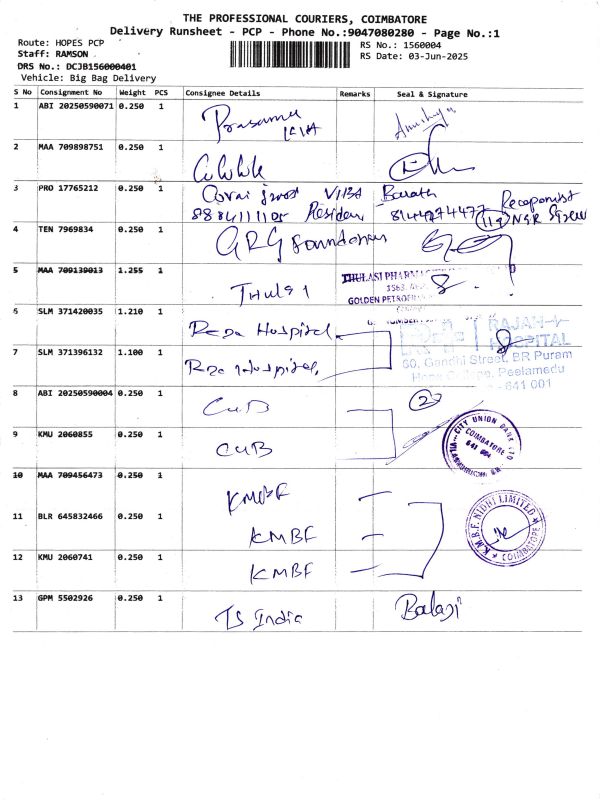 THE PROFESSIONAL COURIERS, COIMBATORE
Delivery Runsheet - PCP - Phone No.:9047080280 - Page No.:1
Route: HOPES PCP
RS No.: 1560004
Staff: RAMSON
RS Date: 03-Jun-2025
DRS No.: DCJB156000401
Vehicle: Big Bag Delivery
S No Consignment No Weight PCS Consignee Details Remarks Seal & Signature
1 ABI 20250590071 0.250 1
2 MAA 709898751 0.250 1
3 PRO 17765212 0.250 1 Barath
Receptionist
4 TEN 7969834 0.250 1 GRG Foundation
5 MAA 709139013 1.255 1 Thulsi
THULASI PHARMA
GOLDEN
6 SLM 371420035 1.210 1 Hospital
RAJAN
HOSPITAL
7 SLM 371396132 1.100 1 Hospital
60, Gandhi Street, BR Puram
Peelamedu
641 001
8 ABI 20250590004 0.250 1 CUB
9 KMU 2060855 0.250 1 CUB
CITY UNION BANK LTD
COIMBATORE
10 MAA 709456473 0.250 1 KMBF
11 BLR 645832466 0.250 1 KMBF
K.M.B.F. NIDHI LIMITED
COIMBATORE
12 KMU 2060741 0.250 1 KMBF
13 GPM 5502926 0.250 1 TS India Balaji